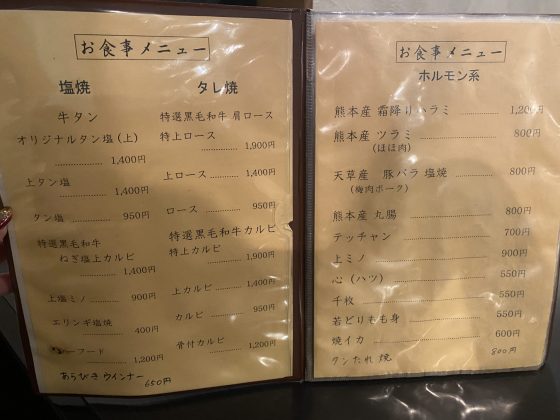 お食事メニュー
塩焼
牛タン
オリジナルタン塩(上)
1,400円
上タン塩
1,400円
タン塩 950円
特選黒毛和牛
ねぎ塩上カルビ
1,400円
上塩ミノ 900円
エリンギ塩焼
400円
ーフード
1,200円
あらびきウインナー
650円
タレ焼
特選黒毛和牛 肩ロース
特上ロース
1,900円
上ロース 1,400円
ロース 950円
特選黒毛和牛カルビ
特上カルビ
1,900円
上カルビ 1,400円
カルビ 950円
骨付カルビ 1,200円
お食事メニュー
ホルモン系
熊本産 霜降りハラミ 1,200円
熊本産 ツラミ 800円
(ほほ肉)
天草産 豚バラ 塩焼 800円
(梅肉ポーク)
熊本産 丸腸 800円
テッチャン 700円
上ミノ 900円
心(ハツ) 550円
千枚 550円
若どりもも身 550円
焼イカ 600円
タンたれ焼 800円